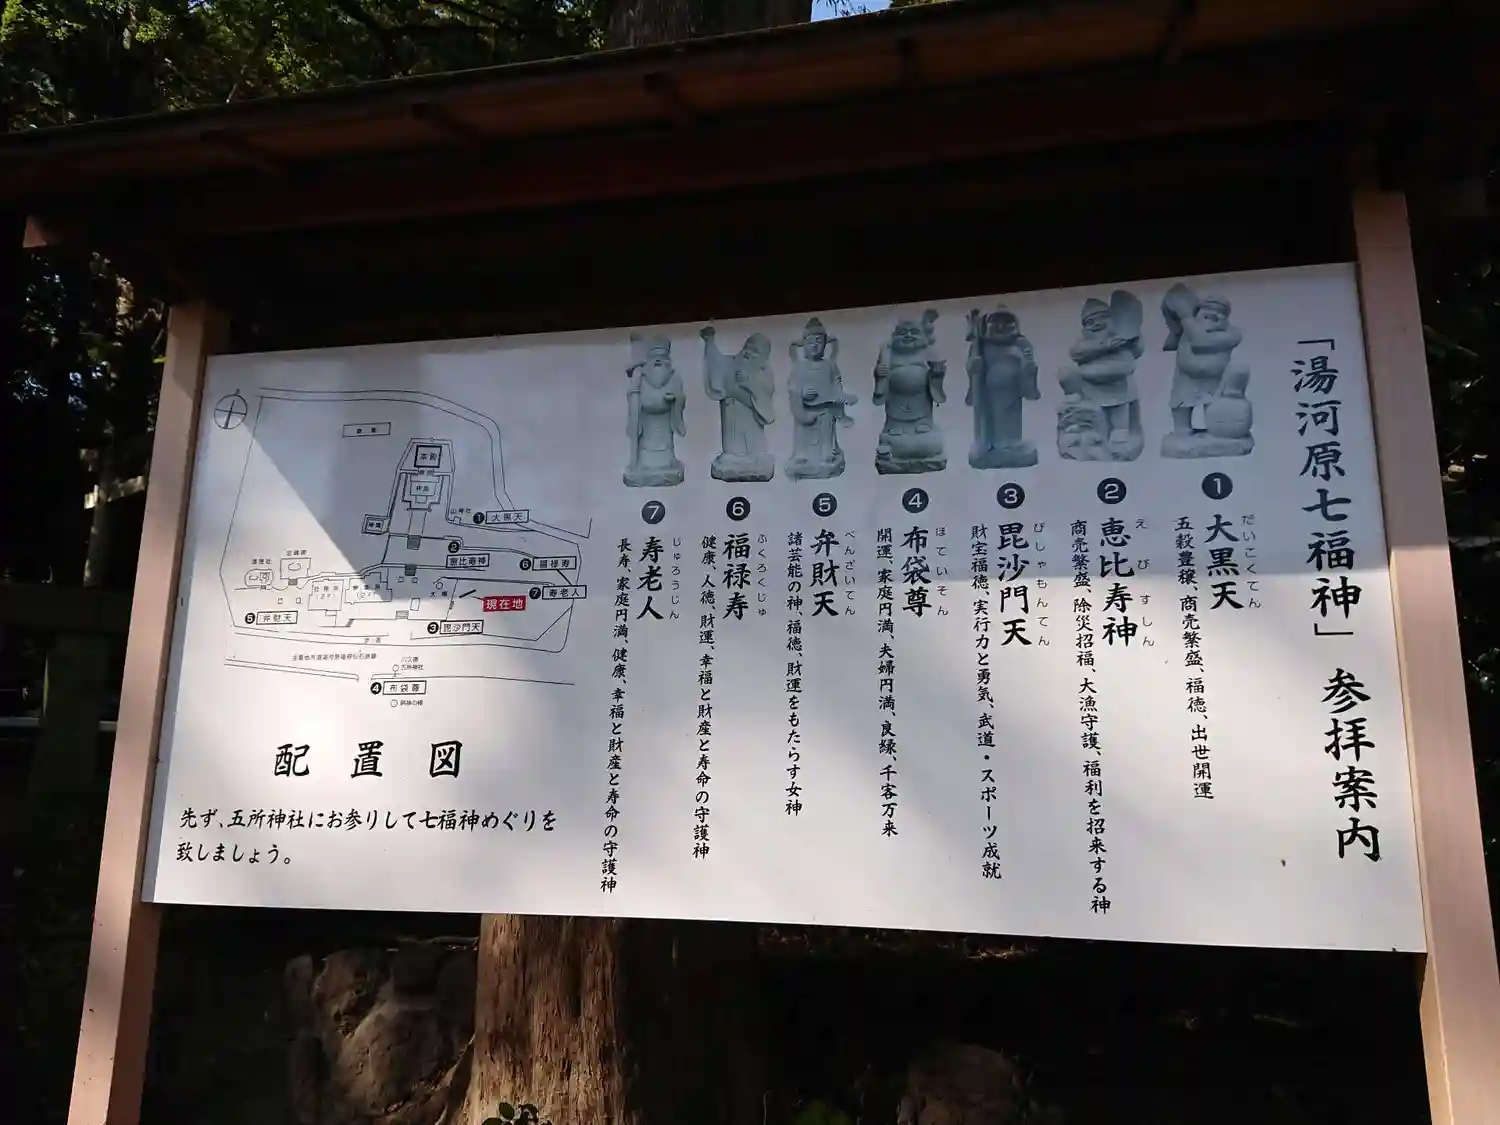 「湯河原七福神」参拝案内
❶
大黒天
だいこくてん
五穀豊穣、商売繁盛、福徳、出世開運
❷
恵比寿神
えびすしん
商売繁盛、除災招福、大漁守護、福利を招来する神
❸
毘沙門天
びしゃもんてん
財宝福徳、実行力と勇気、武道・スポーツ成就
❹
布袋尊
ほていそん
開運、家庭円満、夫婦円満、良縁、千客万来
❺
弁財天
べんざいてん
諸芸能の神、福徳、財運をもたらす女神
❻
福禄寿
ふくろくじゅ
健康、人徳、財運、幸福と財産と寿命の守護神
❼
寿老人
じゅろうじん
長寿、家庭円満、健康、幸福と財産と寿命の守護神
本殿
❶大黒天
❷
恵比寿神
❻福禄寿
❼寿老人
現在地
❸毘沙門天
❺弁財天
五所神社
❹布袋尊
配置図
先ず、五所神社にお参りして七福神めぐりを
致しましょう。